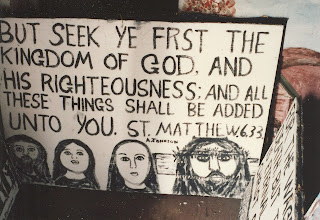 BUT SEEK YE FRST THE
KINGDOM OF GOD, AND
HIS RIGHTEOUSNESS: AND ALL
THESE THINGS SHALL BE ADDED
UNTO YOU. ST. MATTHEW.6:33